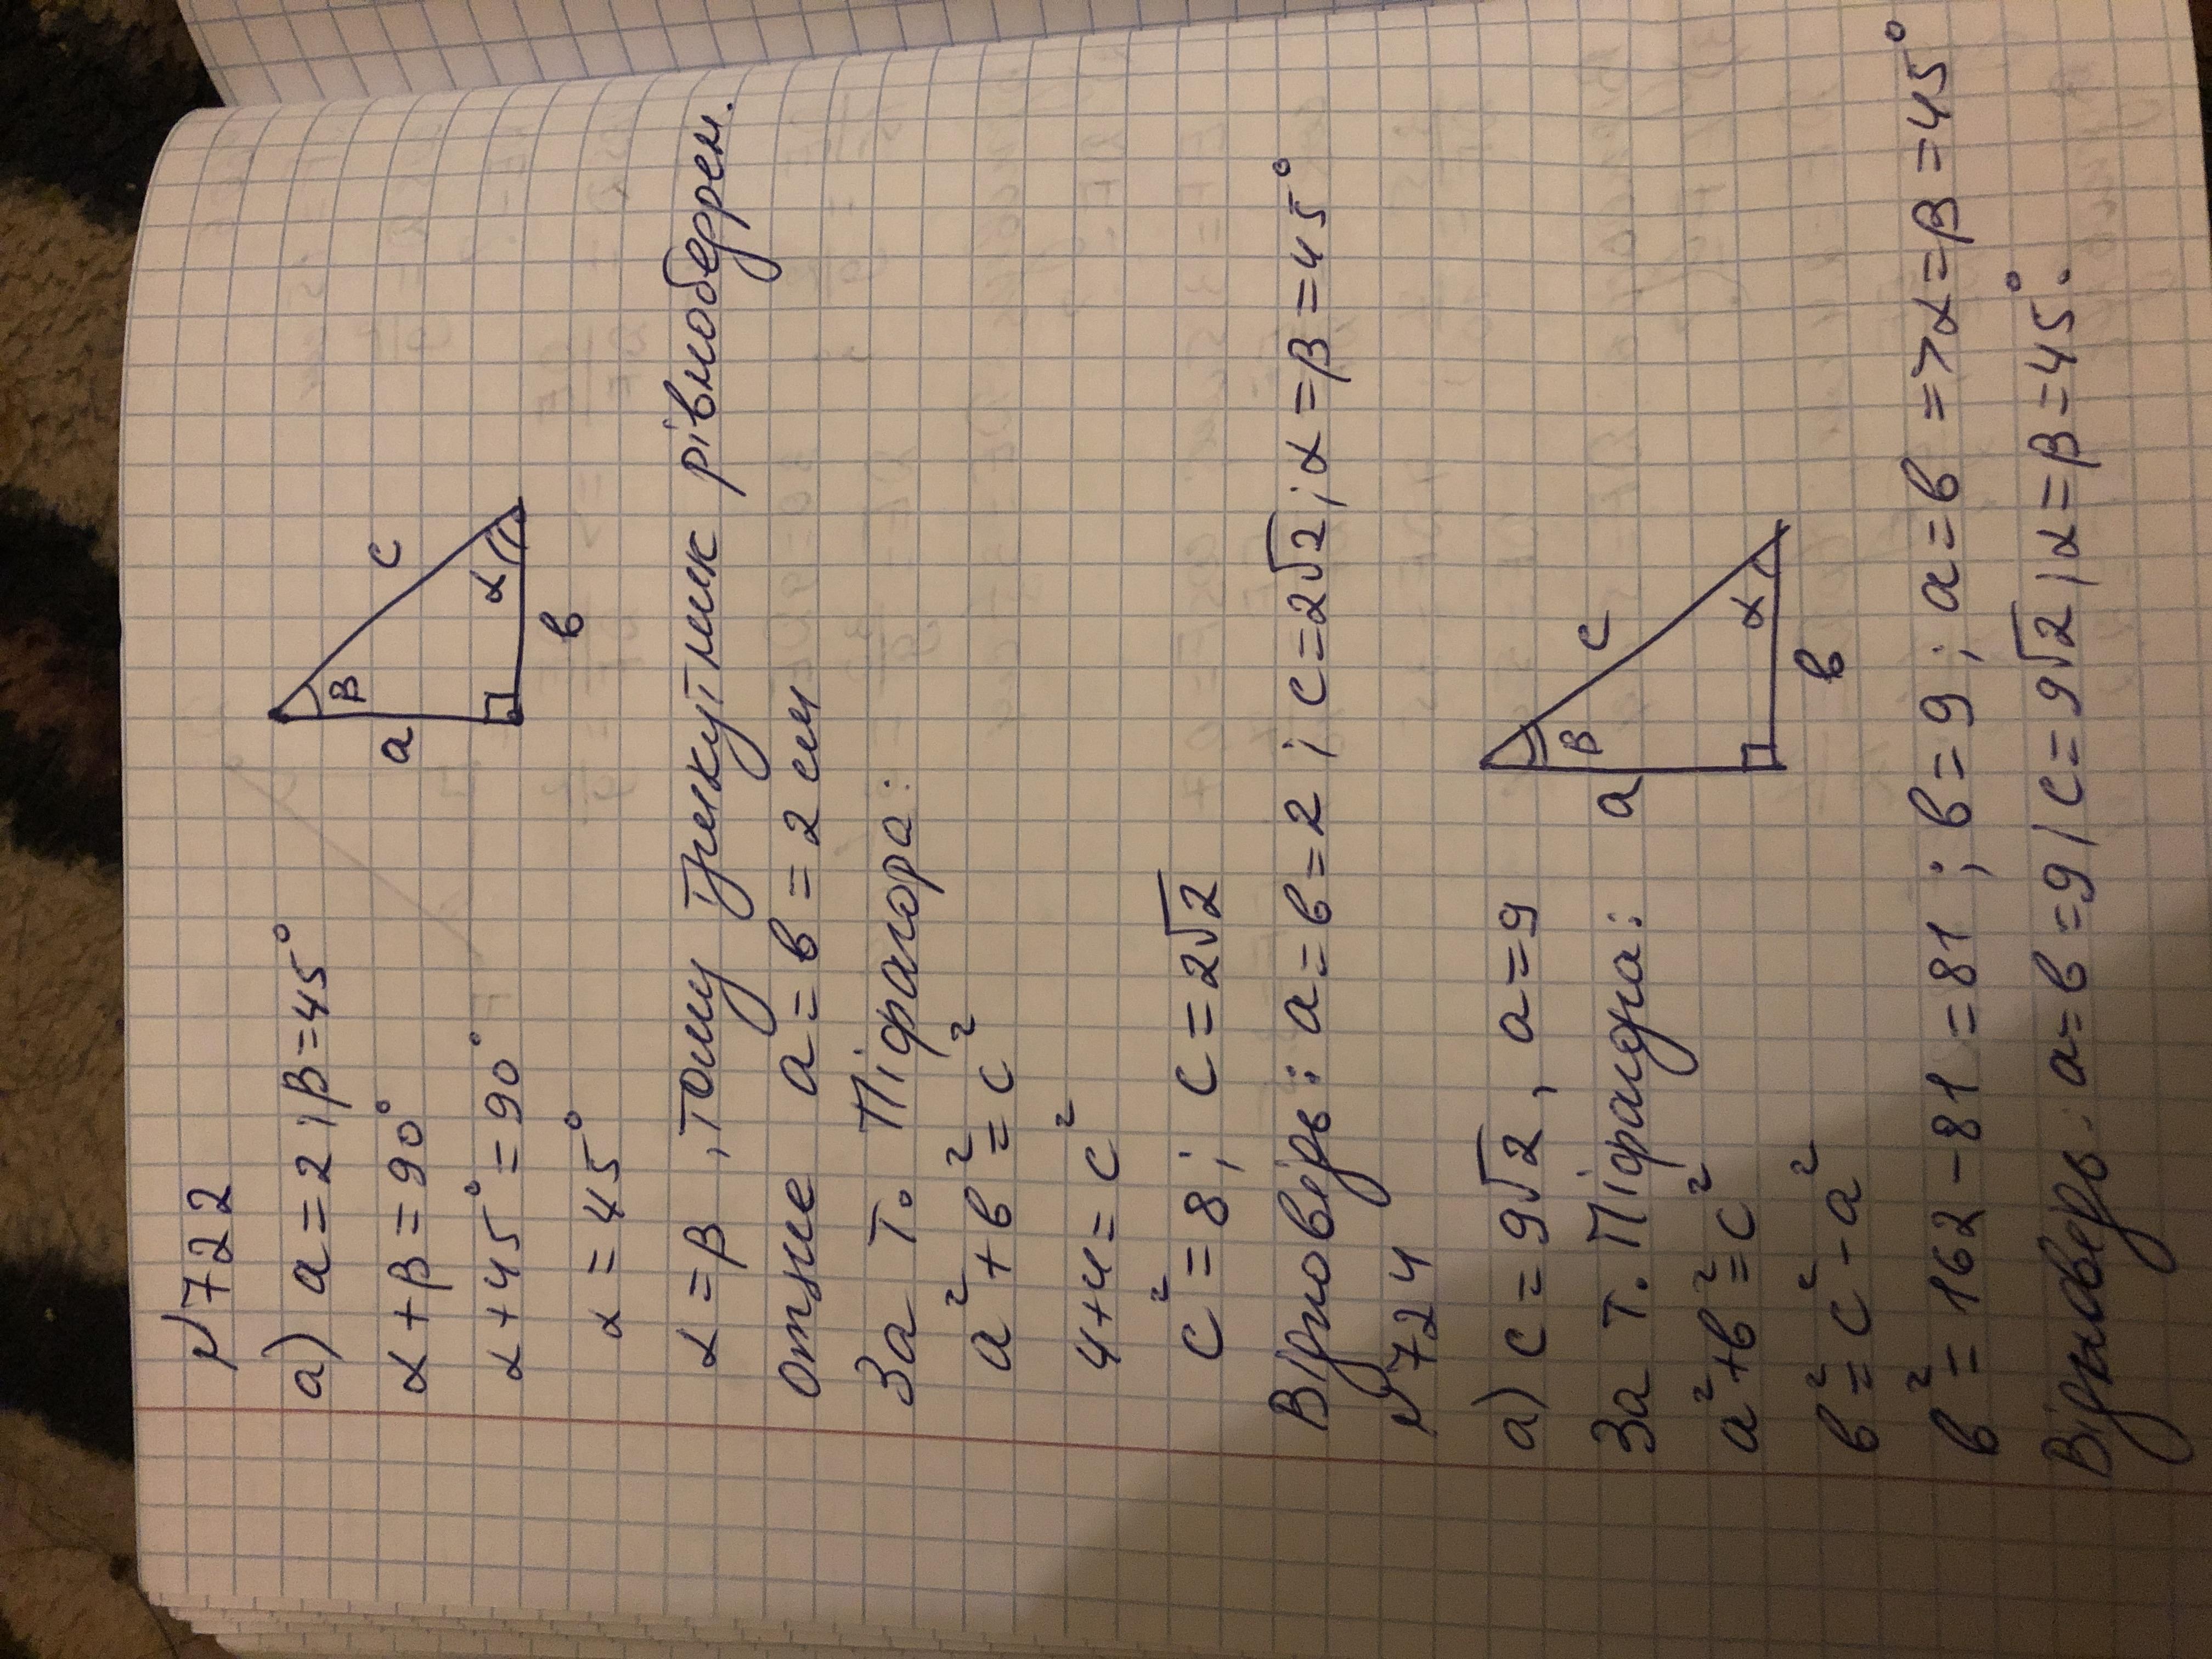 №722
а) a = 2; β = 45°
α + β = 90°
α + 45° = 90°
α = 45°
β
a
c
α
b
α = β, тому трикутник рівнобедрен.
отже a = b = 2 см
За т. Піфагора:
a² + b² = c²
4 + 4 = c²
c² = 8; c = 2√2
Відповідь: a = b = 2; c = 2√2; α = β = 45°
№724
а) c = 9√2, a = 9
За т. Піфагора:
a² + b² = c²
b² = c² - a²
β
a
c
α
b
b² = 162 - 81 = 81; b = 9; a = b => α = β = 45°
Відповідь: a = b = 9; c = 9√2; α = β = 45°.